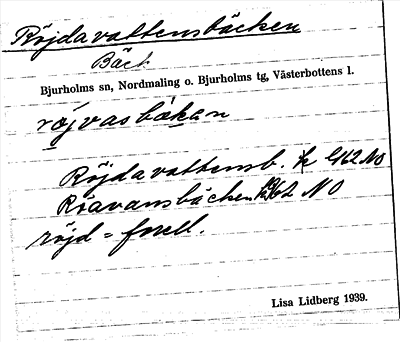 Röjdavattensbäcken
Bäck
Bjurholms sn, Nordmaling o. Bjurholms tg, Västerbottens l.
röjvasbäkan
Röjdavattensb. k 962 NO
Röavansbäcken 962 NO
röjd = forell.
Lisa Lidberg 1939.